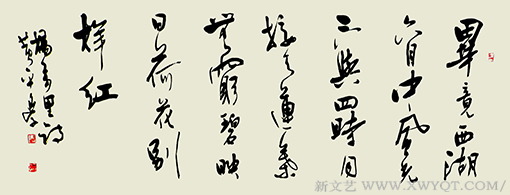 畢竟西湖
六月中風光
不與四時同
接天蓮葉
無窮碧映
日荷花別
樣紅
楊萬里詩
新文艺 / WWW.XWYQT.COM